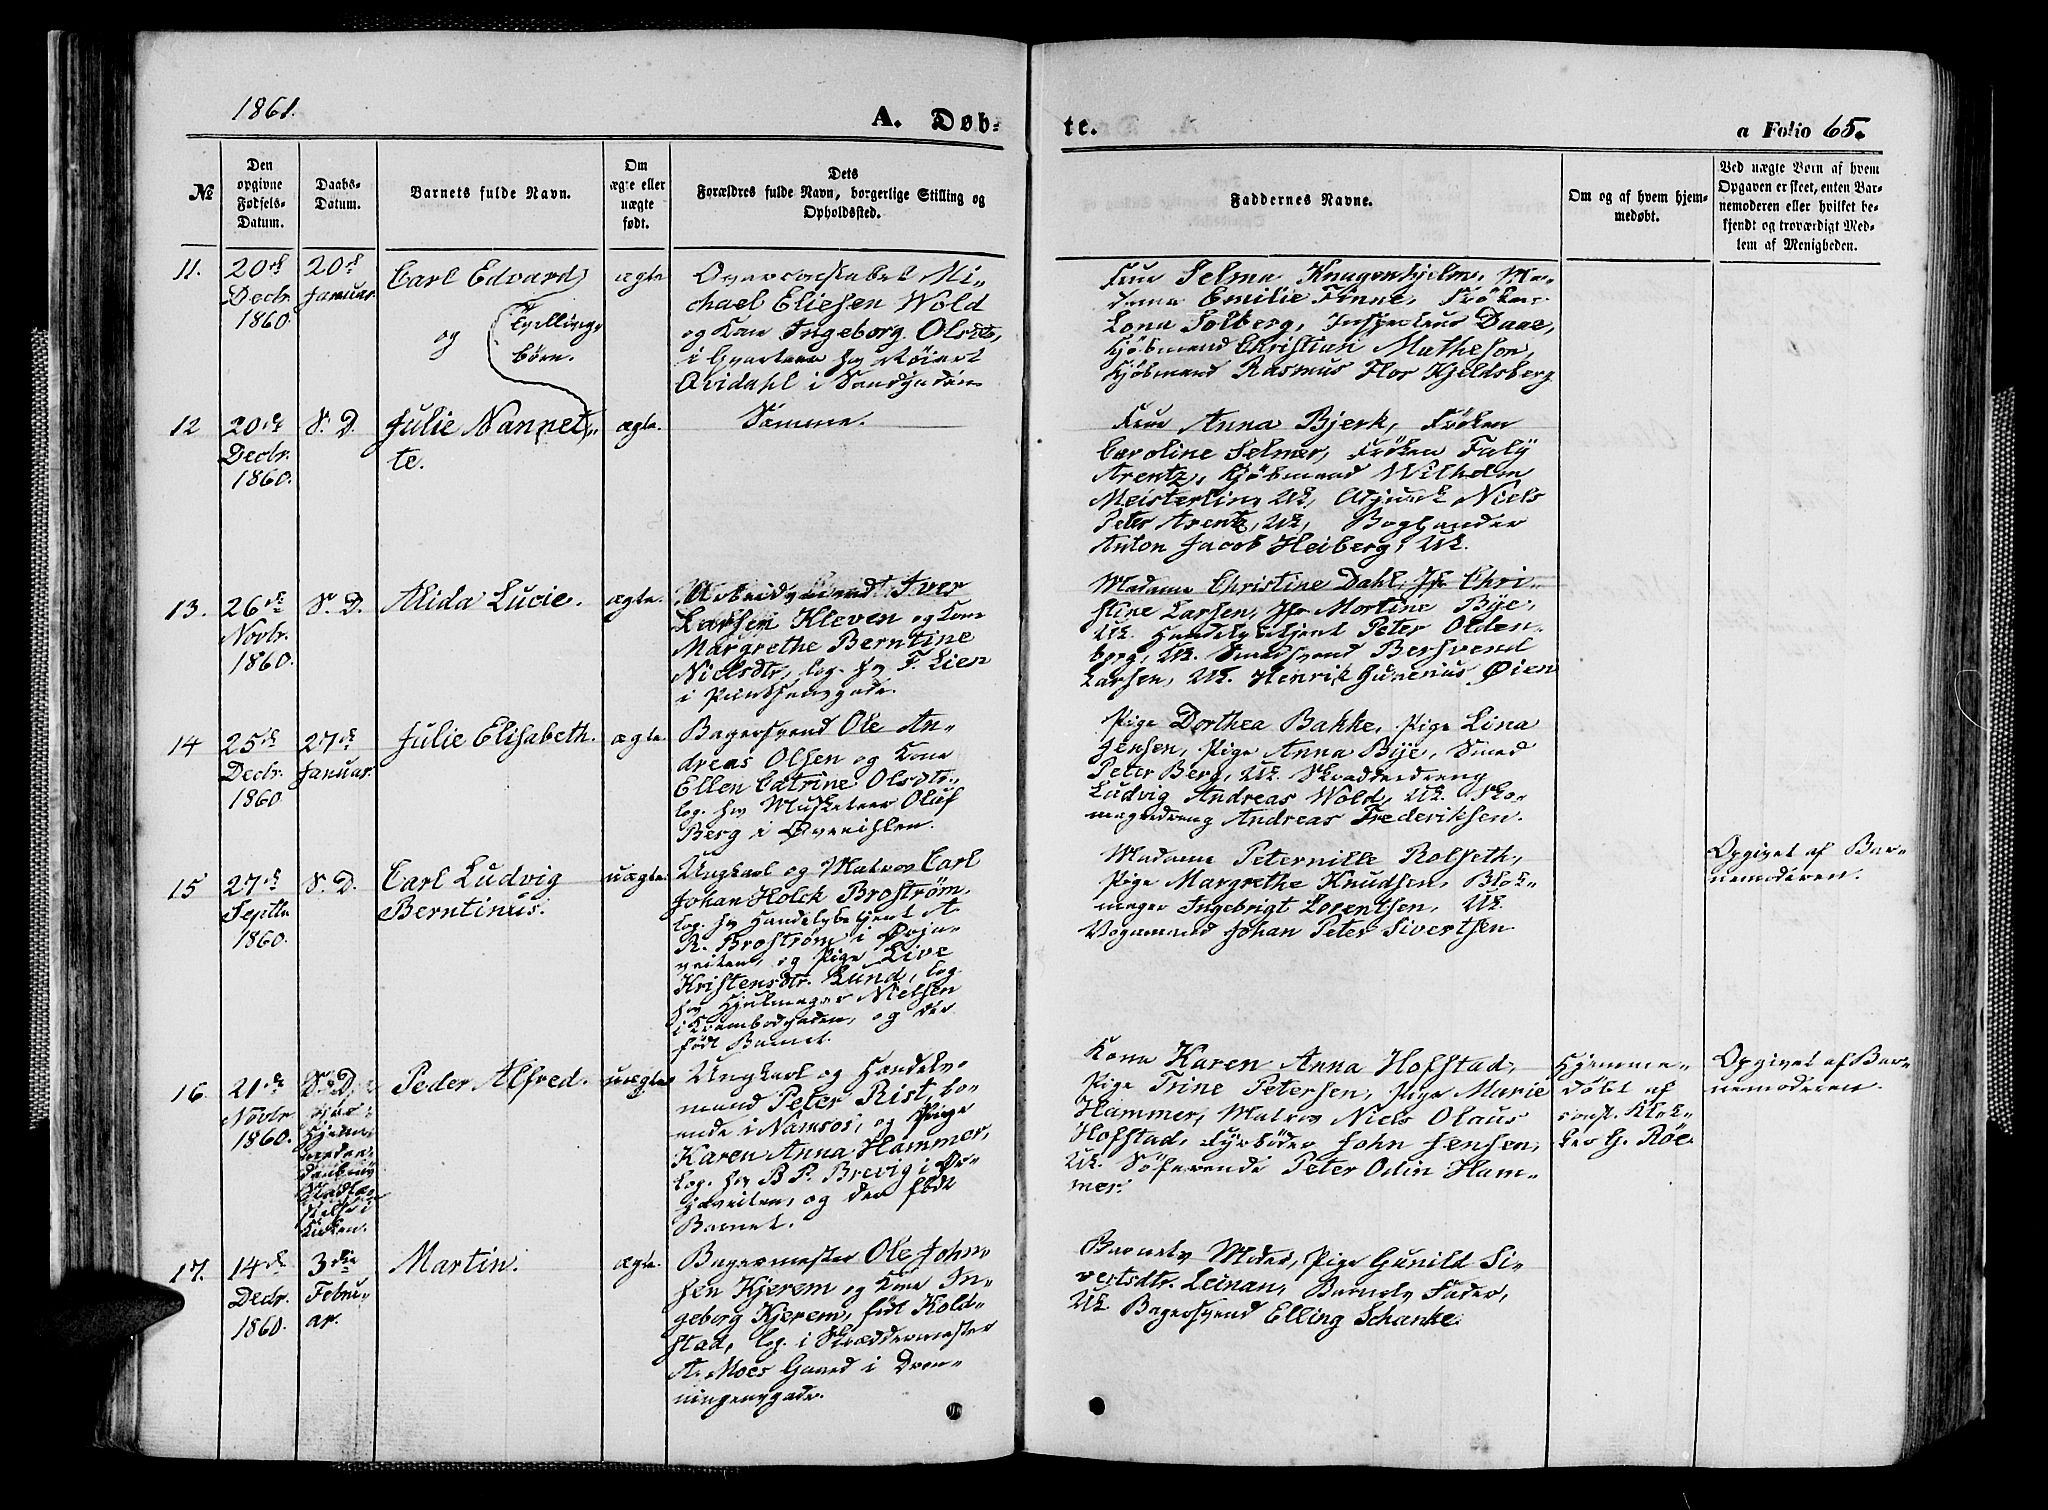 1861.
A. Døb-
te.
a Folio 65.
№
Den
opgivne
Fødsels-
Datum.
Daabs-
Datum.
Barnets fulde Navn.
Om
ægte eller
uægte
født.
Dets
Forældres fulde Navn, borgerlige Stilling og
Opholdssted.
Faddernes Navne.
Om og af hvem hjem-
medøbt.
Ved uægte Børn af hvem
Opgaven er skeet, enten Bar-
nemoderen eller hvilket be-
kjendt og troværdigt Med-
lem af Menigheden.
11.
20de
Decbr.
1860.
20de
Januar.
Carl Edvard
og
Tvillinge
børn.
ægte
Mi-
chael Eliesen Wold
og Kone Ingeborg Olsdtr,
i
Qvidahl i Sandgaden
Frue Selma Knagenhjelm, Ma-
dame Emilie Finne, Frøken
Lona Solberg, Inspecteur Daae,
Kjøbmand Christian Matheson,
Kjøbmand Rasmus Flor Kjeldsberg
12
20de
Decbr.
1860.
S. D.
Julie Nannet-
te.
ægte.
Samme.
Frue Anna Bjerk, Frøken
Caroline Selmer, Frøken Faly
Arentz, Kjøbmand Wilhelm
Meisterlin, Uk, Niels
Peter Arentz, Uk, Boghandler
Anton Jacob Heiberg, Uk.
13.
26de
Novbr.
1860.
S. D.
Alida Lucie.
ægte.
Arbeidsmand Iver
Larsen Kleven og Kone
Margrethe Berntine
Nielsdtr, log. hs F. Lien
i
Madame Christine Dahl, Jfr Chri-
stine Larsen, Jfr Mortine Bye,
Uk. Handelsbetjent Peter Olden-
borg, Uk. Smedsvend Bersvend
Larsen, Uk. Henrik Junenius Øien
14
25de
Decbr.
1860
27de
Januar.
Julie Elisabeth.
ægte.
Bagersvend Ole An-
dreas Olsen og Kone
Ellen Catrine Olsdtr.,
log. hs Musketeer Oluf
Berg i Øvreihlen.
Pige Dorthea Bakke, Pige Lina
Jensen, Pige Anna Bye, Smed
Peter Berg, Uk. Skrædderdreng
Ludvig Andreas Wold, Uk. Sko-
magerdreng Andreas Frederiksen.
15
27de
Septbr
1860.
S. D.
Carl Ludvig
Berntinus.
uægte.
Ungkarl og Matros Carl
Johan Holck Broström,
log. hs Handelsbetjent A.
R. Broström i Ørja-
veiten, og Pige Live
Kristensdtr. Lund, log.
hs Hjulmager Nielsen
i Krambodgaden, og der
født Barnet.
Madame Peternille Rolseth,
Pige Margrethe Knudsen, Blok-
mager Ingebrigt Lorentsen, Uk.
Vognmand Johan Peter Sivertsen
Opgivet af Bar-
nemoderen.
16.
21de
Novbr
1860.
S. D.
Peder Alfred.
uægte
Ungkarl og Handels-
mand Peter Rist, bo-
ende i Namsos, og Pige
Karen Anna Hammer,
log. hs B. P. Brevig i Ør-
javeiten, og der født
Barnet.
Kone Karen Anna Hofstad,
Pige Trine Petersen, Pige Marie
Hammer, Matros Niels Olaus
Hofstad, Fyrbøder John Jensen,
Uk. Søfarende Peter Odin Ham-
mer.
Hjemme-
døbt af
const. Klok-
ker G. Röe
Opgivet af Bar-
nemoderen.
17.
14de
Decbr.
1860.
3die
Febru-
ar.
Martin.
ægte.
Bagermester Ole John-
sen Kjerem og Kone In-
geborg Kjerem, født Kold-
stad, log. i Skræddermester
A. Moes Gaard i Dron-
ningensgade.
Barnets Moder, Pige Gunild Si-
vertsdtr. Leinan, Barnets Fader,
Uk Bagersvend Elling Schanke.